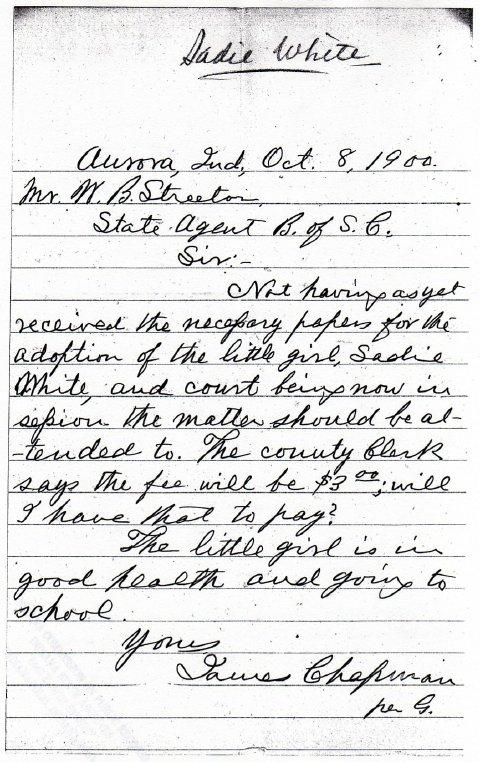 Sadie White
Aurora, Ind, Oct. 8, 1900.
Mr. W. B. Streeton,
State Agent B. of S. C.
Sir:-
Not having as yet
received the necessary papers for the
adoption of the little girl, Sadie
White, and court being now in
session the matter should be at-
-tended to. The county Clerk
says the fee will be $3 00; will
I have that to pay?
The little girl is in
good health and going to
school.
Yours
James Chapman
per G.